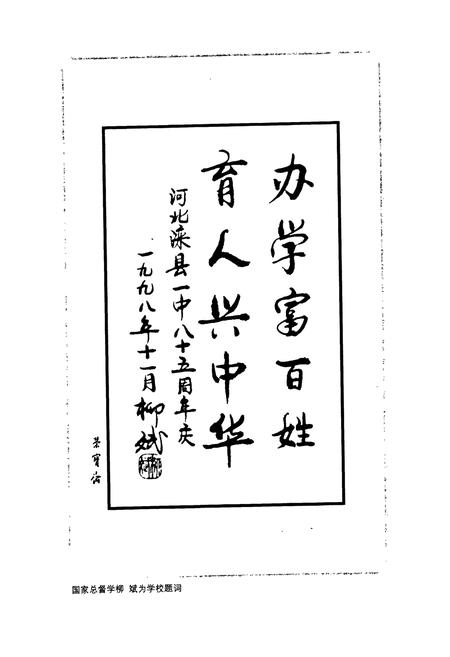 办学富百姓
育人兴中华
河北滦县一中八十五周年庆
一九九八年十一月 柳斌
荣宝斋
国家总督学柳 斌为学校题词